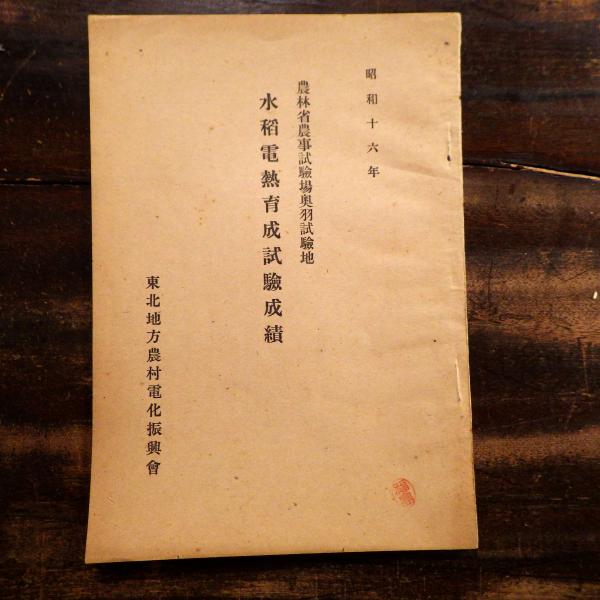 昭和十六年
農林省農事試驗場奥羽試驗地
水稻電熱育成試驗成績
東北地方農村電化振興會